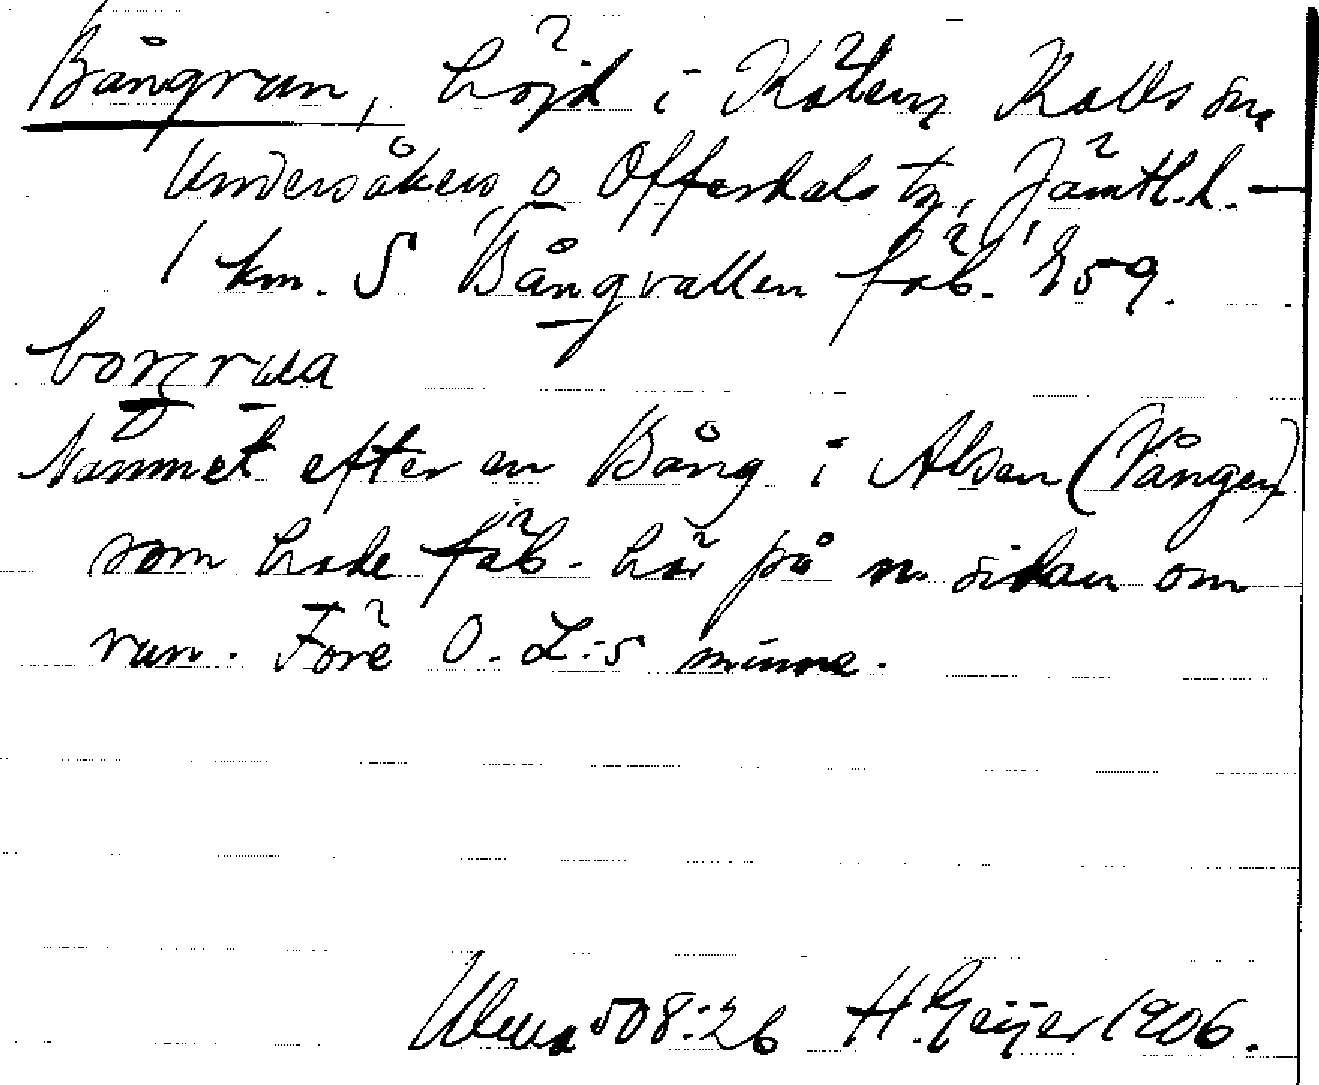 Bångrun, höjd i Kölen, Kalls sn,
Undersåkers o Offerdals tg, Jämtl.l. —
1 km. S Bångvallen fäb. E59.
Namnet efter en Bång i Alsen (Vången)
som hade fäb. här på n. sidan om
run. Före O. L:s minne.
508:26 H. Geijer 1906.